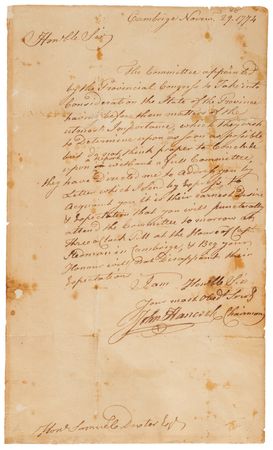 Cambrige Novem. 29. 1774
Hon.ble Sir
The Committee appointed
by the Provincial Congress to Take into
Consideration the State of the Province
having before them matters of the
utmost Importance, which they wish
to Determine upon as soon as possible
but do not think proper to Conclude
upon without a full Committee,
they have Directed me to Address you a
Letter which I send by Express to
Acquaint you it is their earnest Desire
& Expectation that you will punctually
attend the Committee to morrow at
three o Clock at the House of Cap.t
Stedman in Cambrige, & Beg your
Honour will not Disappoint their
Expectations
I am Hon.ble Sir
Your most Obed.t Serv.t
John Hancock Chairman
Hon.e Samuel Dexter Esq.r